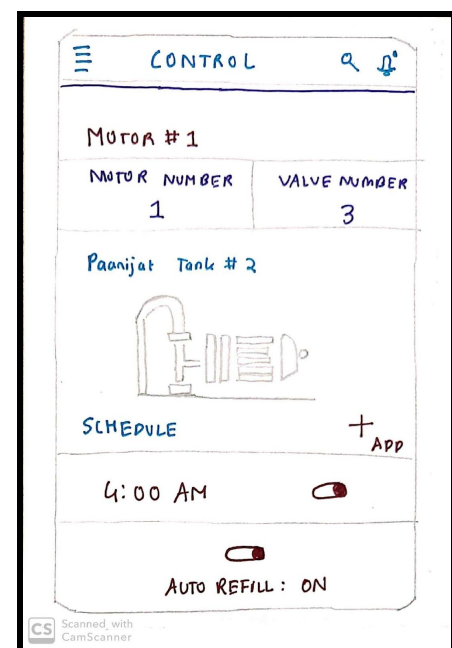 CONTROL
MOTOR # 1
MOTOR NUMBER
1
VALVE NUMBER
3
Paanijat Tank # 2
SCHEDULE
+ ADD
4:00 AM
AUTO REFILL: ON
CS Scanned with
CamScanner